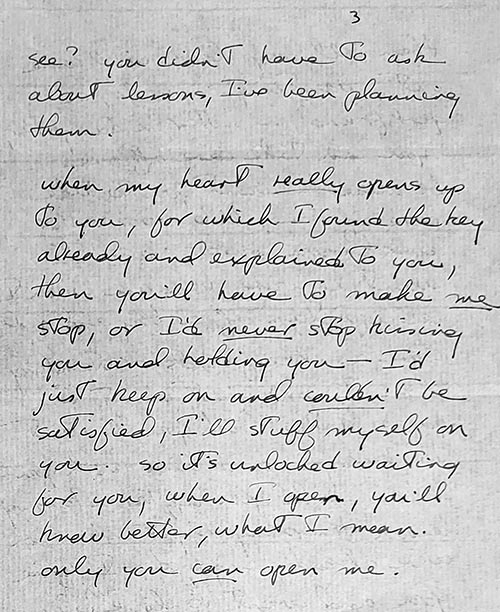 3
see? you didn't have to ask
about lessons, I've been planning
them.
when my heart really opens up
to you, for which I found the key
already and explained to you,
then you'll have to make me
stop, or I'd never stop kissing
you and holding you — I'd
just keep on and couldn't be
satisfied, I'll stuff myself on
you. so it's unlocked waiting
for you, when I open, you'll
know better, what I mean.
only you can open me.